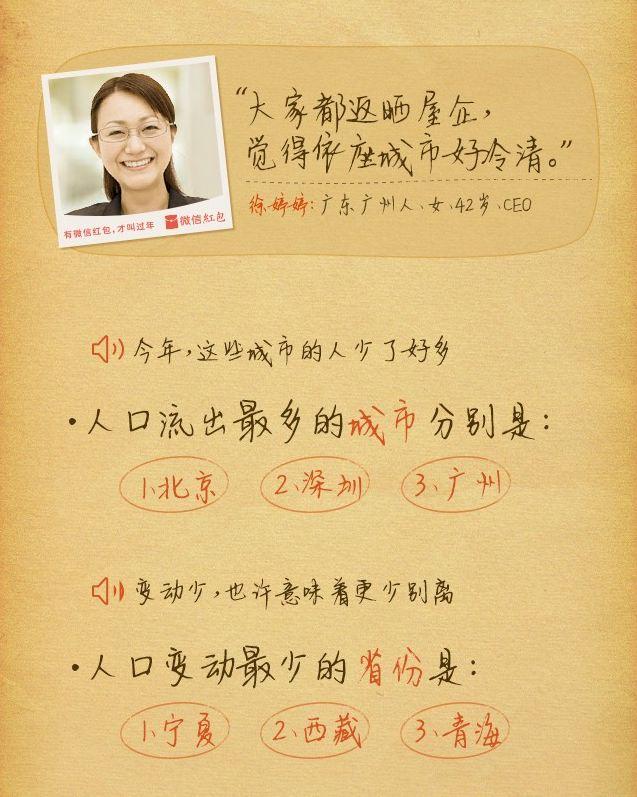 “大家都返晒屋企，
觉得依座城市好冷清。”
徐婷婷：广东广州人、女、42岁、CEO
有微信红包，才叫过年 微信红包
今年，这些城市的人少了好多
·人口流出最多的城市分别是：
1、北京 2、深圳 3、广州
变动少，也许意味着更少别离
·人口变动最少的省份是：
1、宁夏 2、西藏 3、青海